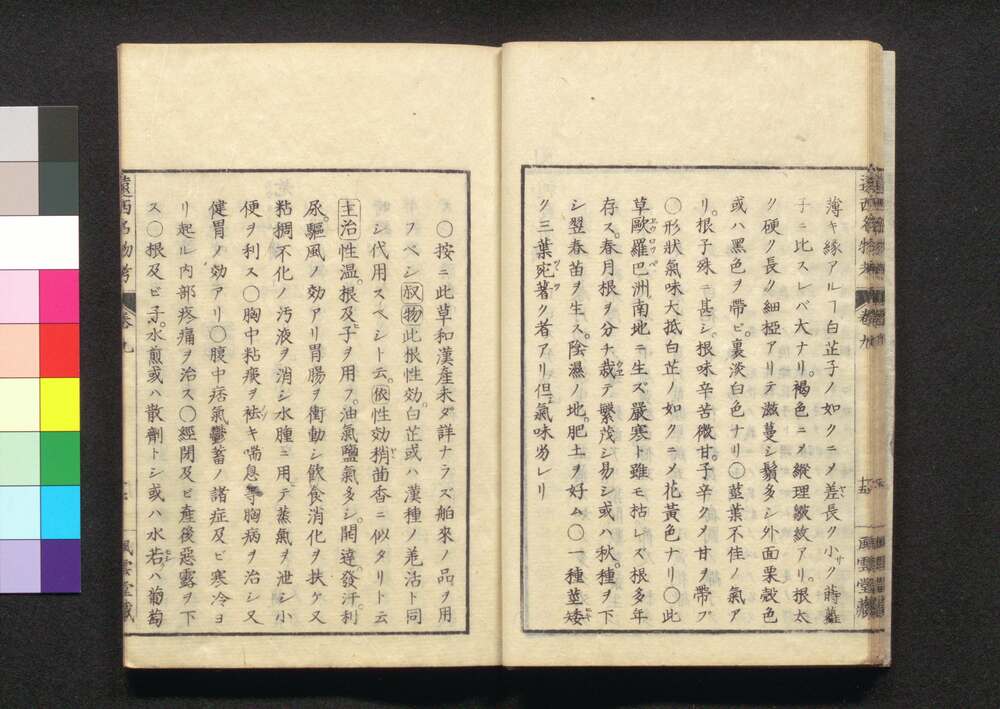 薄キ縁アルヿ白芷子ノ如クニメ差長ク小ク蒔蘿
子ニ比スレバ大ナリ。褐色ニメ縱理皺紋アリ。根太
ク硬ク長ク細椏アリテ滋蔓シ鬚多シ外面栗殻色
或ハ黒色ヲ帶ビ。裏淡白色ナリ〇莖葉不佳ノ氣ア
リ。根子殊ニ甚シ。根味辛苦微甘。子辛クメ甘ヲ帶ブ
〇形狀氣味大抵白芷ノ如クニメ花黃色ナリ〇此
草歐羅巴洲南地ニ生ズ嚴寒ト雖モ枯レズ根多年
存ス。春月根ヲ分チ栽テ繁茂シ易シ或ハ秋。種ヲ下
シ翌春苗ヲ生ス。陰濕ノ地。肥土ヲ好ム〇一種莖矮
ク三葉宛著ク者アリ但氣味劣レリ
十五
風雲堂藏
〇按ニ此草和漢産未ダ詳ナラズ舶來ノ品ヲ用
フベシ叔物此根性効。白芷或ハ漢種ノ羌活ト同
シ代用スベシト云。依性効稍茴香ニ似タリト云
主治性温。根及子ヲ用フ。油氣鹽氣多シ。開達。發汗。利
尿。驅風ノ効アリ胃腸ヲ衝動シ飲食消化ヲ扶ケ又
粘稠不化ノ汚液ヲ消シ水腫ニ用テ蒸氣ヲ泄シ小
便ヲ利ス〇胸中粘痰ヲ袪キ喘息等胸病ヲ治シ又
健胃ノ効アリ〇腹中痞氣鬱蓄ノ諸症及ビ寒冷ヨ
リ起ル内部疼痛ヲ治ス〇經閉及ビ產後惡露ヲ下
ス〇根及ビ子。水煎或ハ散劑トシ或ハ水若ハ葡萄
遠西名物考
卷九
風雲堂藏